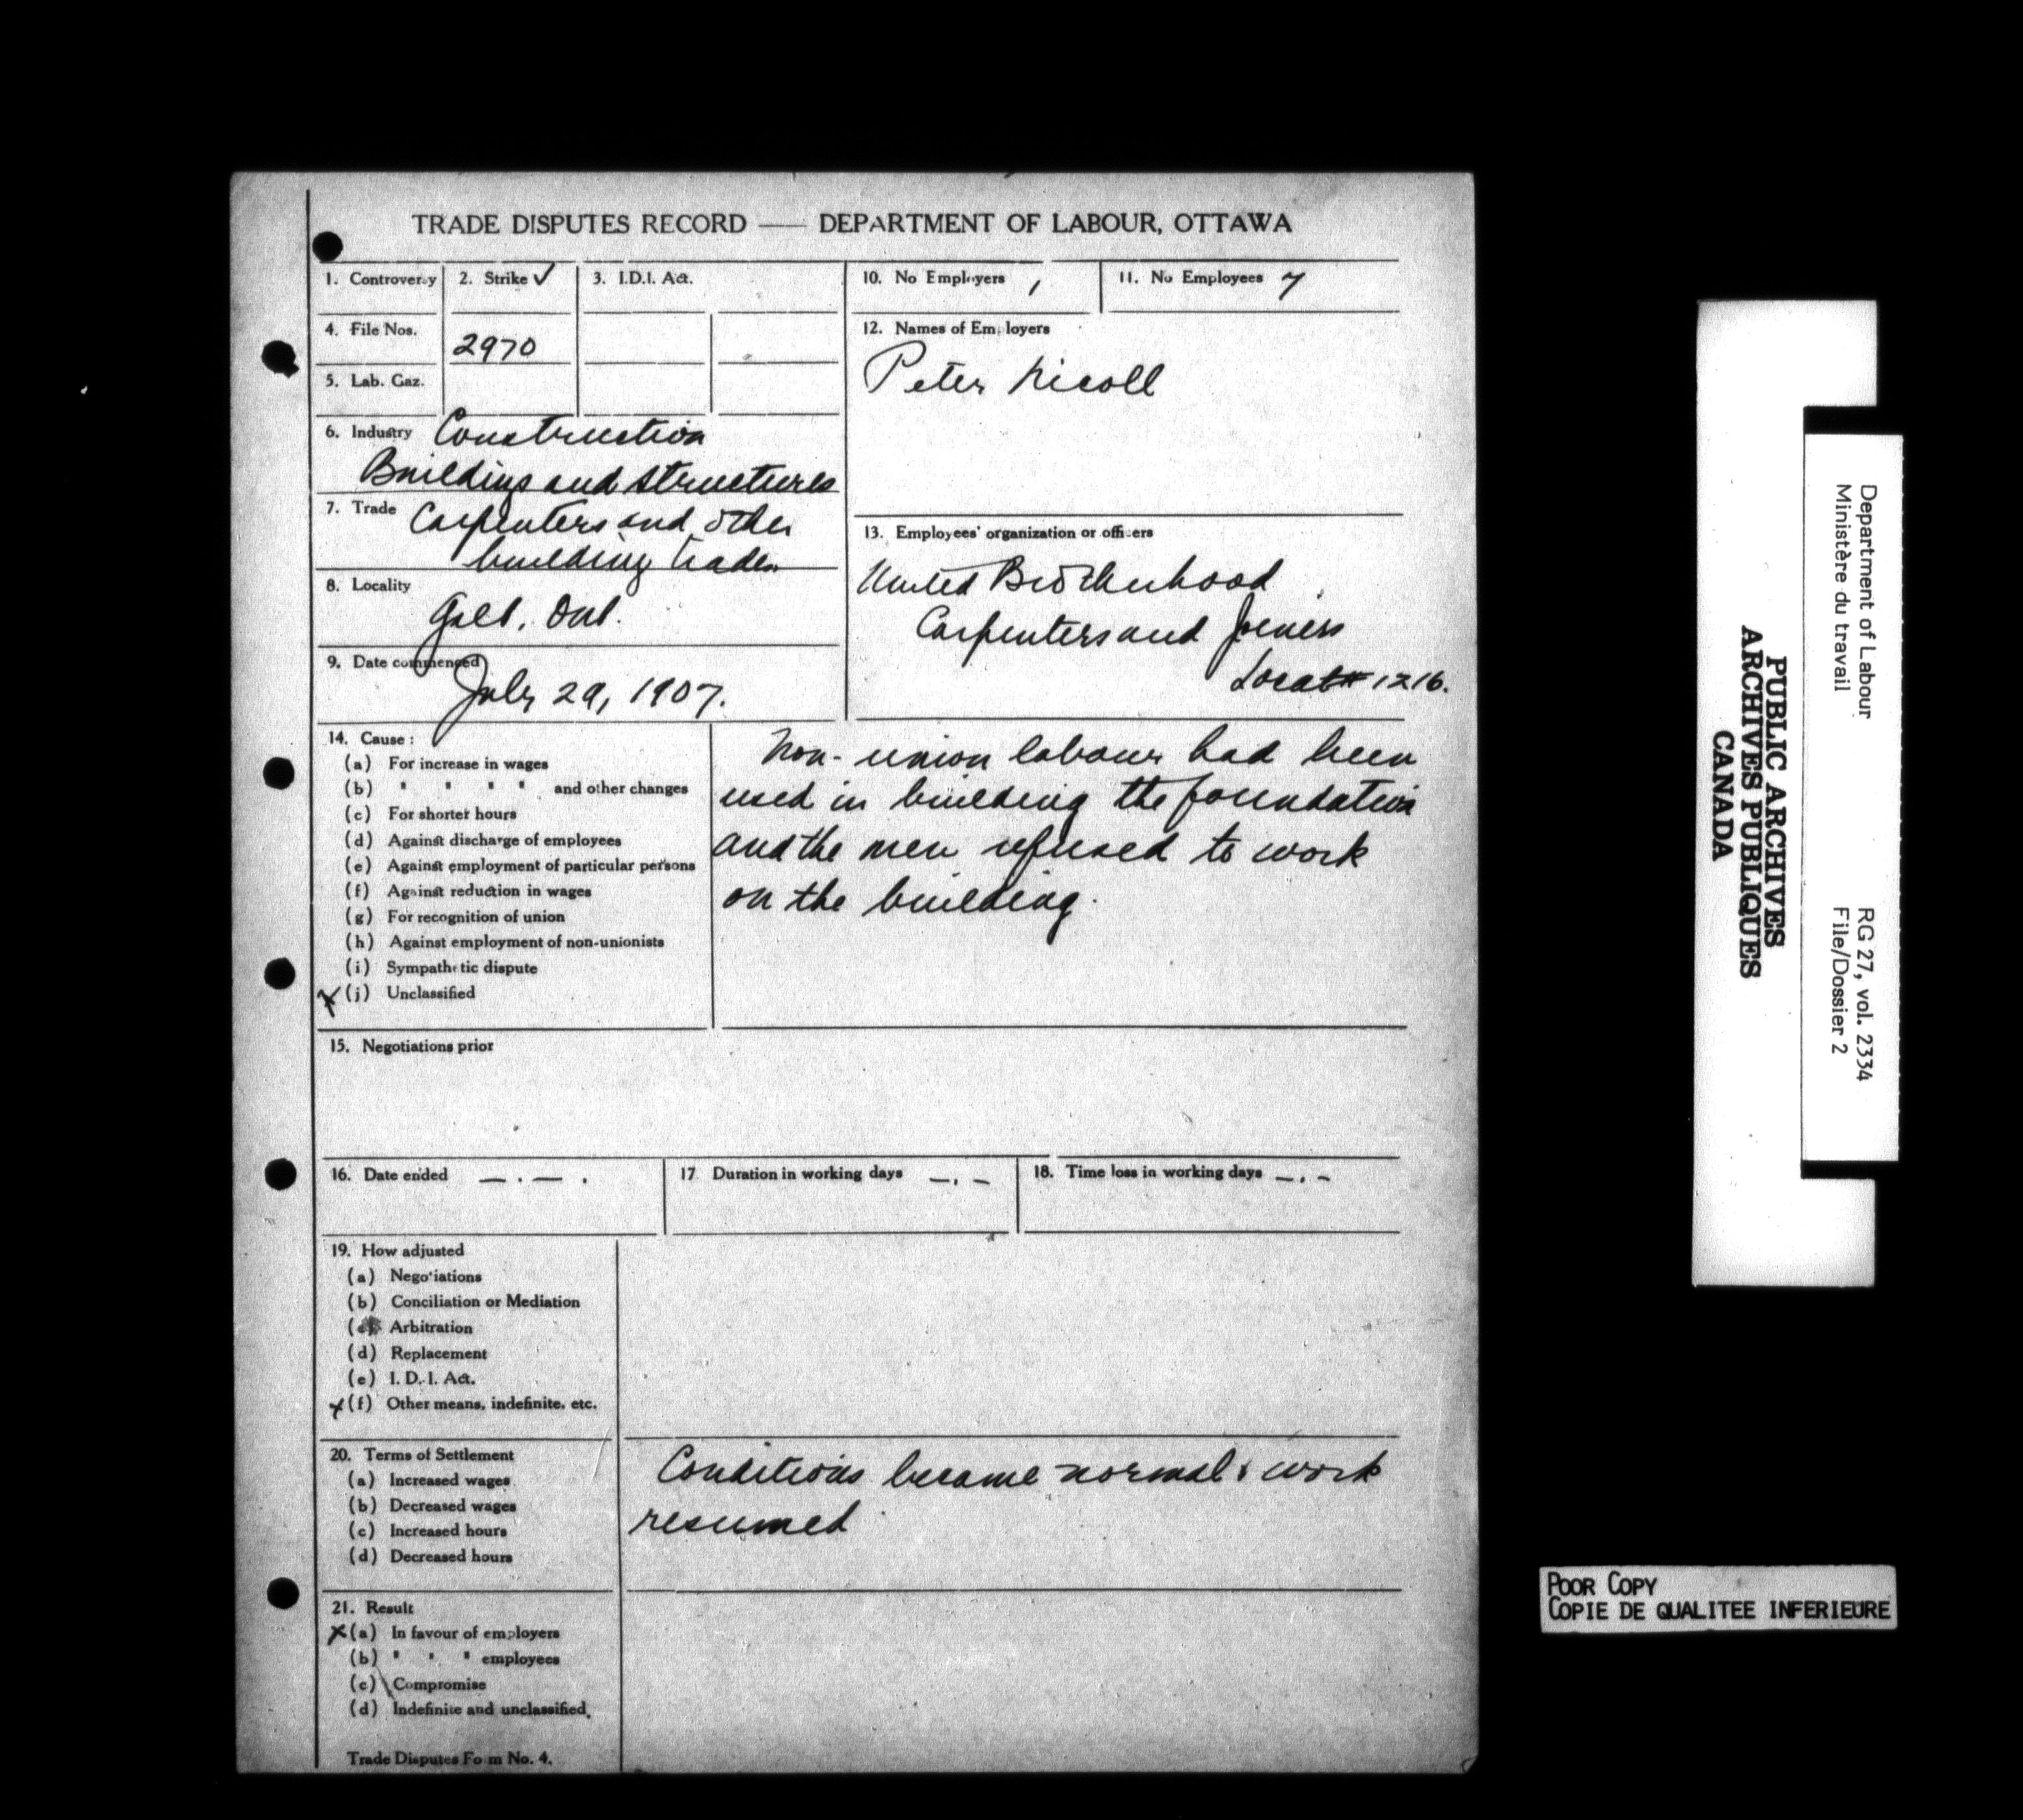 TRADE DISPUTES RECORD —— DEPARTMENT OF LABOUR, OTTAWA
1. Controversy
2. Strike ✓
3. I.D.I. Act.
4. File Nos.
2970
5. Lab. Gaz.
6. Industry Construction
Buildings and structures
7. Trade Carpenters and other
building trades
8. Locality
Galt, Ont.
9. Date commenced
July 29, 1907.
10. No Employers 1
11. No Employees 7
12. Names of Employers
Peter Nicoll
13. Employees' organization or officers
United Brotherhood
Carpenters and Joiners
Local # 1216.
14. Cause :
(a) For increase in wages
(b) " " " " and other changes
(c) For shorter hours
(d) Against discharge of employees
(e) Against employment of particular persons
(f) Against reduction in wages
(g) For recognition of union
(h) Against employment of non-unionists
(i) Sympathetic dispute
x (j) Unclassified
Non-union labour had been
used in building the foundation
and the men refused to work
on the building.
15. Negotiations prior
16. Date ended —.—.
17 Duration in working days —.–
18. Time loss in working days –.–
19. How adjusted
(a) Negotiations
(b) Conciliation or Mediation
(c) Arbitration
(d) Replacement
(e) I. D. I. Act.
x (f) Other means, indefinite, etc.
20. Terms of Settlement
(a) Increased wages
(b) Decreased wages
(c) Increased hours
(d) Decreased hours
Conditions became normal & work
resumed
21. Result
x (a) In favour of employers
(b) " " " employees
(c) Compromise
(d) Indefinite and unclassified.
Trade Disputes Form No. 4.
PUBLIC ARCHIVES
ARCHIVES PUBLIQUES
CANADA
Department of Labour
Ministère du travail
RG 27, vol. 2334
File/Dossier 2
POOR COPY
COPIE DE QUALITEE INFERIEURE